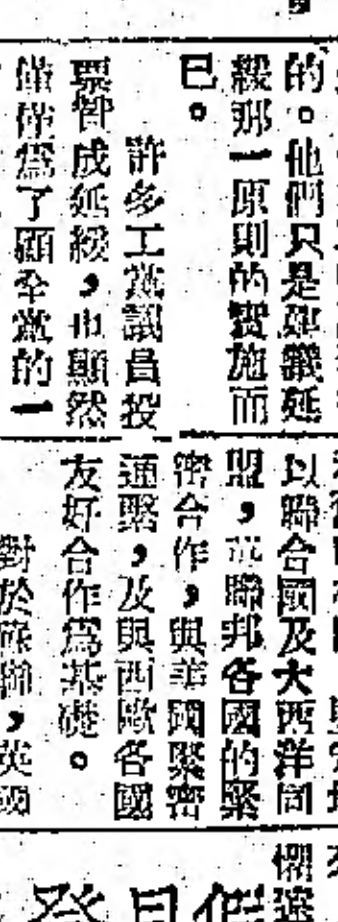 的。他們只是建議延
緩那一原則的實施而
已。
許多工黨議員投
票贊成延緩,也顯然
僅僅爲了顧全黨的一
以聯合國及大西洋同
盟,英聯邦各國的緊
密合作,與美國緊密
通聯,及與西歐各國
友好合作爲基礎。
對於蘇聯,英國